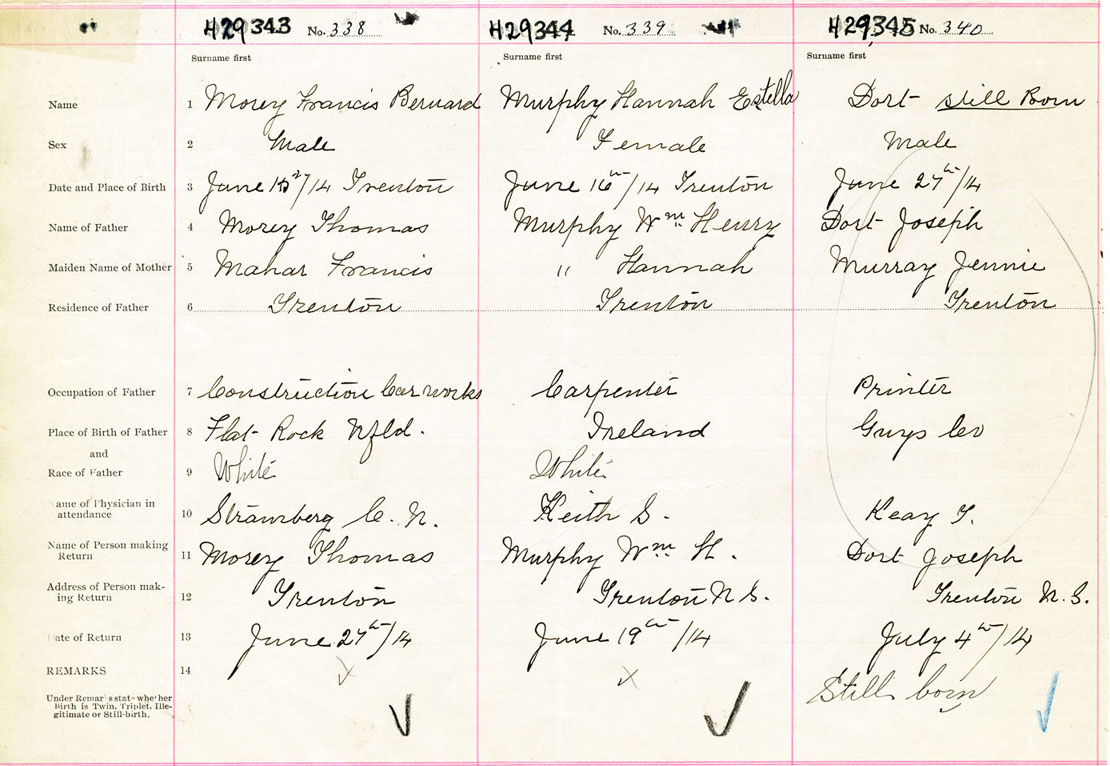 429343 No. 338 429344 No. 339 429345 No. 340
Surname first Surname first Surname first
Name 1 Morey Francis Bernard Murphy Hannah Estella Dort still Born
Sex 2 Male Female Male
Date and Place of Birth 3 June /14 Trenton June 16th/14 Trenton June 27th/14
Name of Father 4 Morey Thomas Murphy Wm Henry Dort Joseph
Maiden Name of Mother 5 Mahar Francis " Hannah Murray Jennie
Residence of Father 6 Trenton Trenton Trenton
Occupation of Father 7 Construction Car works Carpenter Printer
Place of Birth of Father 8 Flat Rock Nfld. Ireland Guys Co
and
Race of Father 9 White White
Name of Physician in
attendance 10 Stramberg C. N. Keith S. Keay T.
Name of Person making
Return 11 Morey Thomas Murphy Wm H. Dort Joseph
Address of Person mak-
ing Return 12 Trenton Trenton N S. Trenton N. S.
Date of Return 13 June 27th/14 June 19th/14 July 4th/14
REMARKS 14 Still born
Under Remarks state whether
Birth is Twin, Triplet, Ille-
gitimate or Still-birth.